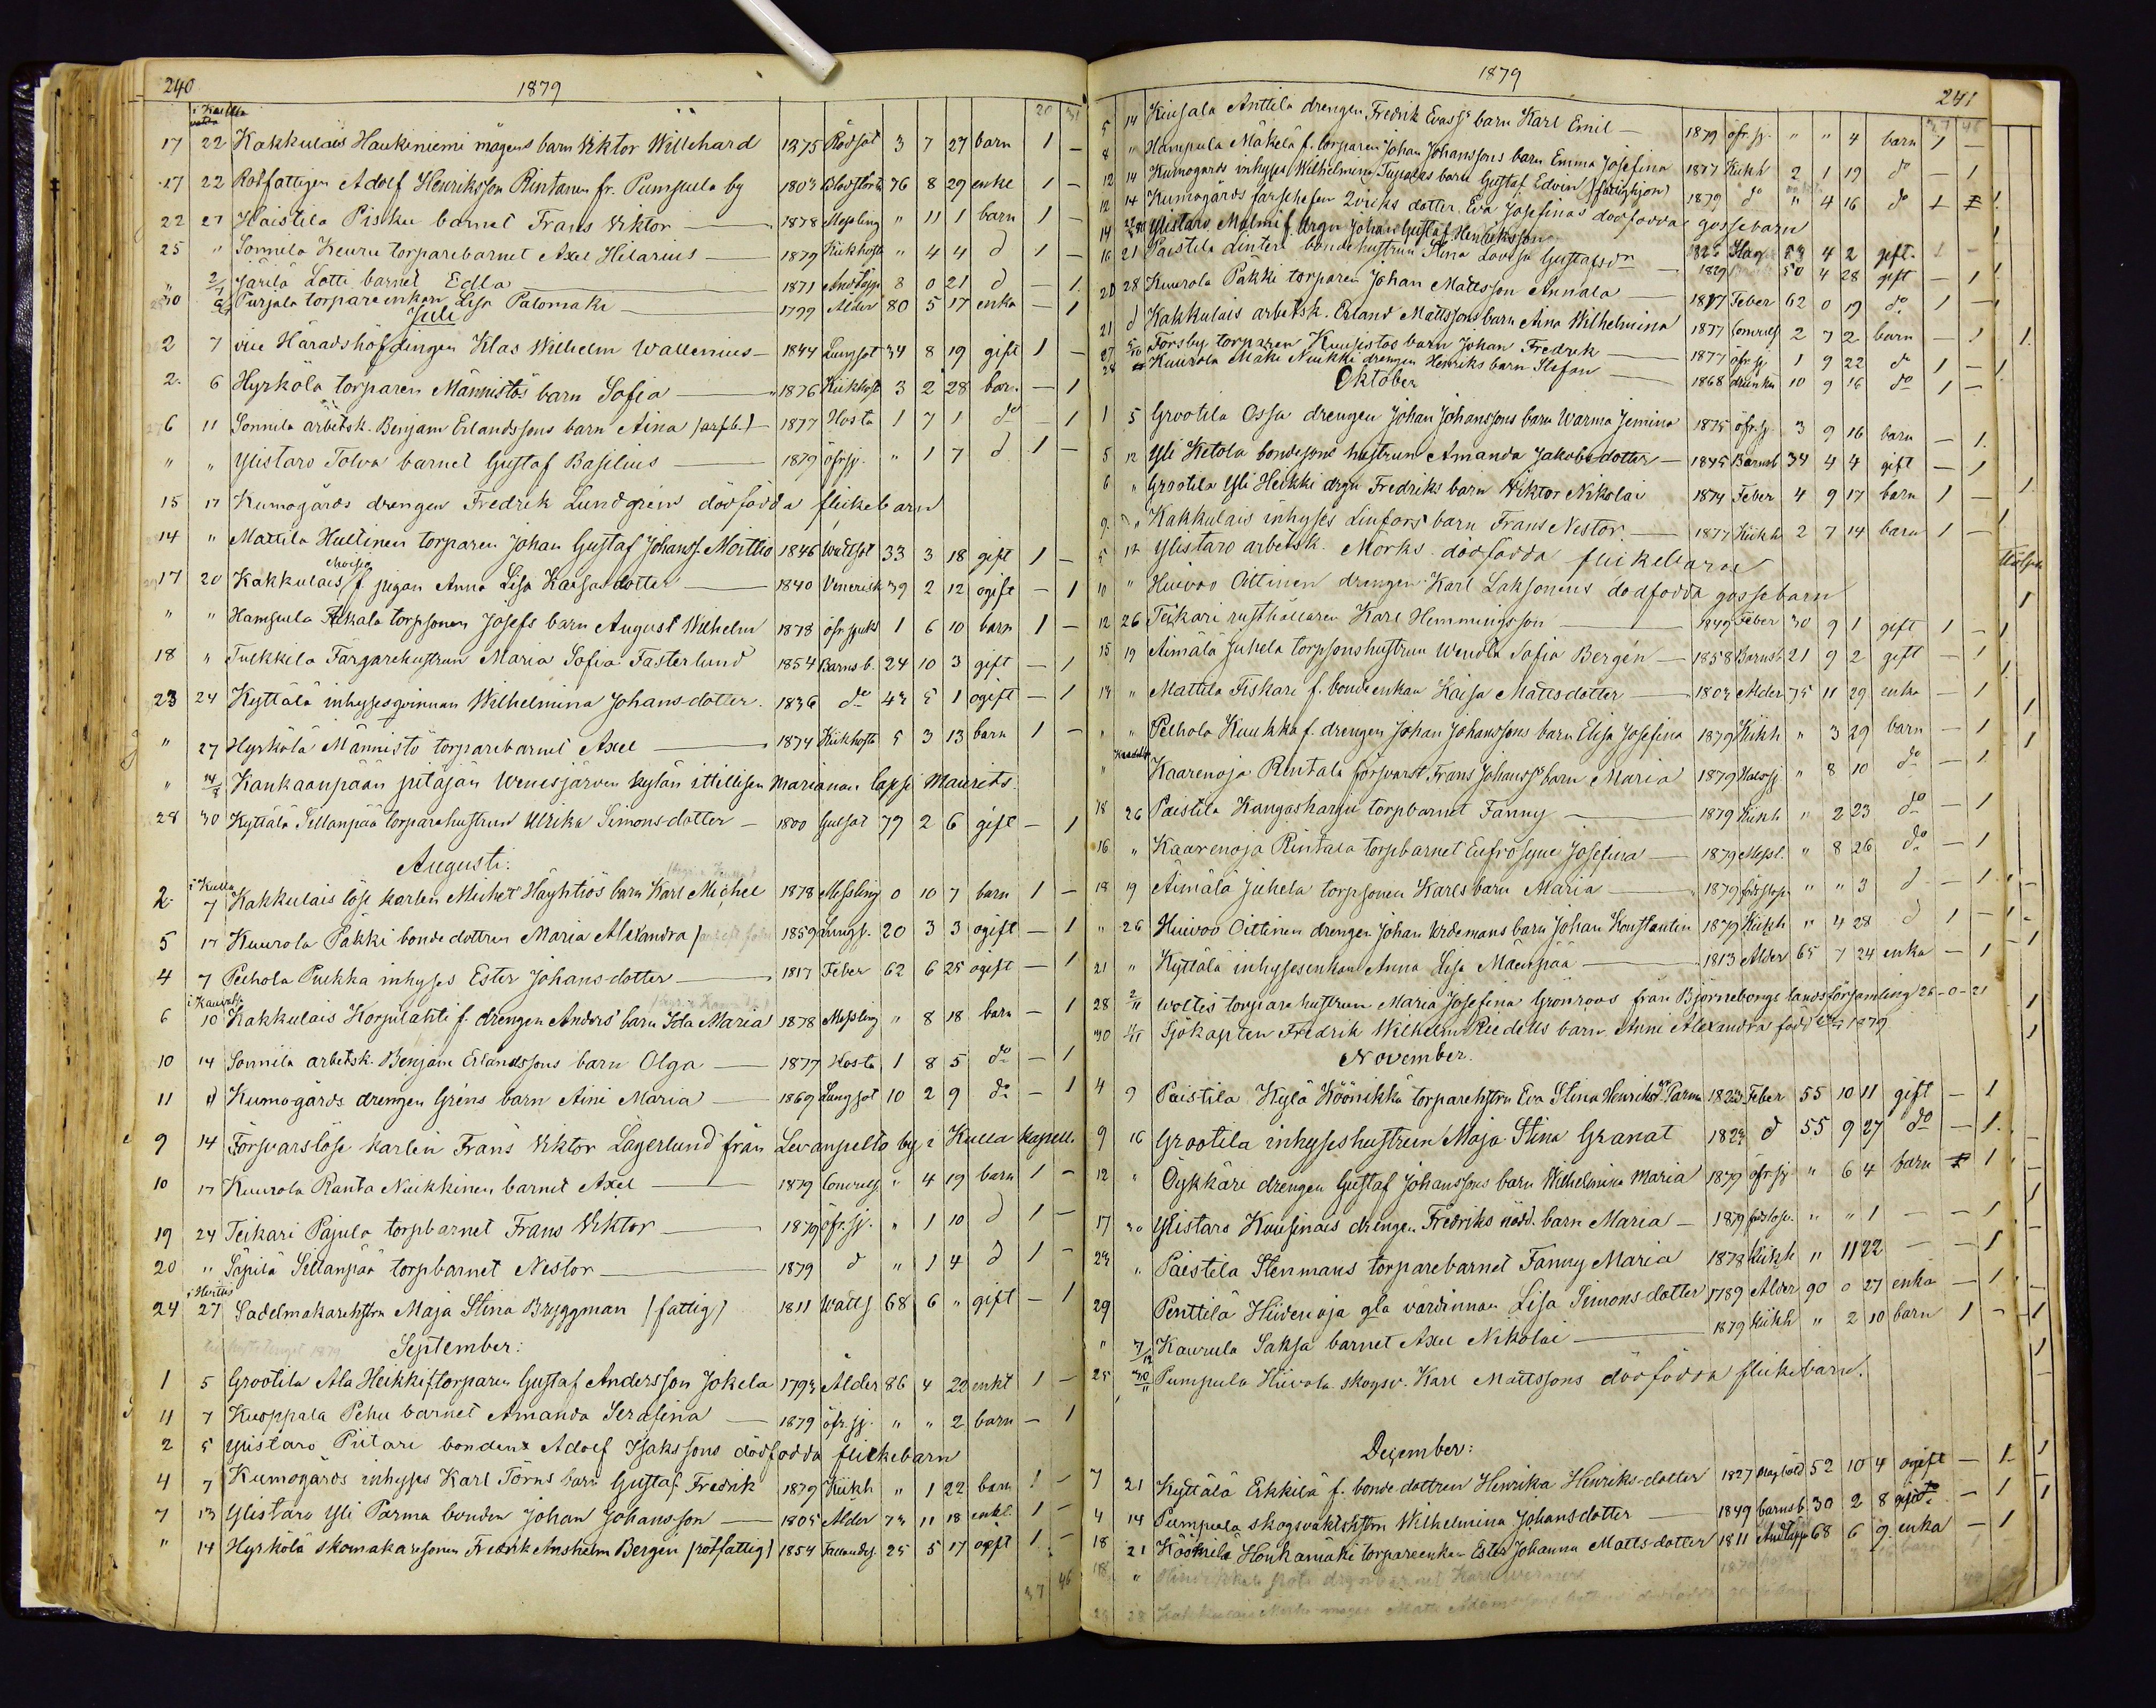 240
1879
20 31
i Kaitlla
17 22 Kakkulais Haukiniemi mågens barn Viktor Willehard 1875 Rödsot 3 7 27 barn 1 -
17 22 Rotfattigen Adolf Henriksson Rintanen fr. Pumpula by 1803 76 8 29 enkl 1 -
22 27 Haistila Pisku barnet Frans Viktor 1878 Messling " 11 1 barn 1 -
25 " Sonnila Keuru torparebarnet Axel Hilarius 1879 Kikhosta " 4 4 d 1 -
" 2/7 Järilä Lotti barnet Edla 1871 Andtäppa 8 0 21 d - 1
30 Purjala torpareenkan Lisa Palomäki 1799 Ålder 80 5 17 enka - 1
Juli
2 7 vice Häradshöfdingen Klas Wilhelm Wallenius 1844 Lungsot 34 8 19 gift 1 -
2. 6 Hyrkölä torparen Männistös barn Sofia 1876 Kikhosta 3 2 28 bar. - 1
6 11 Sonnila arbetsk. Benjam Erlandssons barn Aina 1877 Hosta 1 7 1 do - 1
" " Ylistaro Tolva barnet Gustaf Basilius 1879 öfr.sj. " 1 7 d 1 -
15 17 Kumogårds drengen Fredrik Lundgrén dödfödda flickebarn
14 " Mattila Hultinen torparen Johan Gustaf Johanss. Moittio 1846 Wattsot 33 3 18 gift 1 -
17 20 Kakkulais Moisio f pigan Anna Lisa Kaisasdotter 1840 Venerisk 39 2 12 ogift - 1
" " Hampula Pukala torpsonen Josefs barn August Wilhelm 1878 öfr.sjuk 1 6 10 barn 1 -
18 " Tulkkila Färgarehustrun Maria Sofia Fasterlund 1854 Barns b. 24 10 3 gift - 1
23 24 Kyttälä inhysesqvinnan Wilhelmina Johansdotter. 1836 do 43 5 1 ogift - 1
" 27 Hyrkölä Männistö torparebarnet Axel 1874 Kikhosta 5 3 13 barn 1 -
" 14/8 Kankaanpään pitäjän Wenesjärven kylän ittillisen Marianan lapsi Maurits.
28 30 Kyttälä Sillanpää torparehustrun Ulrika Simonsdotter 1800 Gulsot 79 2 6 gift - 1
Augusti:
i Kulla
2. 7 Kakkulais löse karlen Michel Häyhtiös barn Karl Michel 1878 Messling 0 10 7 barn 1 -
5 17 Kuurola Pakki bonde dottren Maria Alexandra 1859 Lungs. 20 3 3 ogift - 1
4 7 Peihola Pukka inhyses Ester Johansdotter 1817 Feber 62 6 25 ogift - 1
6 10 Kakkulais Korpilahti f. drengen Anders' barn Ida Maria 1878 Messling " 8 18 barn - 1
10 14 Sonnila arbetsk. Benjam Erlandssons barn Olga 1877 Hosta 1 8 5 do - 1
11 " Kumogårds drengen Gréns barn Aini Maria 1869 Lungsot 10 2 9 do - 1
9 14 Försvarslöse karlen Frans Viktor Lagerlund från Levanpelto by i Kulla kapell.
10 17 Kuurola Ranta Nuikkinen barnet Axel 1879 Convuls. " 4 19 barn 1 -
19 24 Teikari Pajula torpbarnet Frans Viktor 1879 öfr.sj. " 1 10 d 1 -
20 " Säpilä Sillanpää torpbarnet Nestor 1879 d " 1 4 d 1 -
24 27 Sadelmakarehstru Maja Stina Bryggman (fattig) 1811 Watts 68 6 " gift - 1
September:
1 5 Grootila Ala Heikki f torparen Gustaf Andersson Jokela 1793 Ålder 86 4 22 enkl 1 -
4 7 Kuoppala Pehu barnet Amanda Serafina 1879 öfr.sj. " " 2 barn - 1
2 5 Ylistaro Piitari bondens Adolf Isakssons dödfödda flickebarn
4 7 Kumogårds inhyses Karl Törns barn Gustaf Fredrik 1879 Kikh " 1 22 barn 1 -
7 13 Ylistaro Yli Parma bonden Johan Johansson 1805 Ålder 73 11 18 enkl. 1 -
" 14 Hyrkölä skomakaresonen Fredrik Anshelm Bergen (rotfattig) 1854 Fallandes. 25 5 17 ogift 1 -
37 46
1879
241
37 46
5 14 Kiusala Anttila drengen Fredrik Evass's barn Karl Emil 1879 öfr.sj. " " 4 barn 1 -
8 " Hampula Mäkelä f. torparen Johan Johanssons barn Emma Josefina 1877 Kikh 2 1 19 do - 1
12 14 Kumogårds inhyses Wilhelmina Tupalas barn Gustaf Edvin (fattighjon) 1879 d " 4 16 do
12 14 Kumogårds farschefen Qviks dotter Eva Josefinas dödfödda gossebarn
14 Ylistaro Malmi f. Johan Gustaf Henriksson 4 2 gift.
16 21 Paistila Lintera bondehustrun Stina Lovisa Gustafsdr 1829 50 4 28 gift - 1
20 28 Kuurola Pakki torparen Johan Mattsson Annala 1817 Feber 62 0 19 do 1 -
21 d Kakkulais arbetsk. Erland Mattssons barn Aina Wilhelmina 1877 Convuls 2 7 2 barn - 1
27 5/10 Forsby torparen Kuusistos barn Johan Fredrik 1877 öfr.sj 1 9 22 d 1 -
28 Kuurola Mäki Nuikki drengen Henriks barn Stefan 1868 drunkn 10 9 16 do 1 -
Oktober
1 5 Grootila Ossa drengen Johan Johanssons barn Warma Jemina 1875 öfr.sj. 3 9 16 barn - 1
5 12 Yli Ketola bondesons hustrun Amanda Jakobsdotter 1845 Barnsb 34 4 4 gift - 1
6 " Grootila Yli Heikki drgn Fredriks barn Viktor Nikolai 1874 Feber 4 9 17 barn 1 -
9. " Kakkulais inhyses Linfors barn Frans Nestor. 1877 Kikh 2 7 14 barn 1 -
5 12 Ylistaro arbetsk. Mörks dödfödda flickebarn
10 " Huivoo Oittinen drengen Karl Laksonens dödfödda gossebarn
12 26 Teikari rusthållaren Karl Hemmingsson 1849 Feber 30 9 1 gift 1 -
15 19 Äimälä Juhela torpsonshustrun Wendla Sofia Bergén 1858 Barnsb 21 9 2 gift - 1
13 " Mattila Fiskari f. bondeenkan Kaisa Mattsdotter 1803 Ålder 75 11 29 enka - 1
" " Peihola Kuukka f. drengen Johan Johanssons barn Elisa Josefina 1879 Kikh " 3 29 barn - 1
" Kaarenoja Rintala försvarsl. Frans Johanss's barn Maria 1879 Halssj " 8 10 do - 1
18 26 Paistila Kangasharju torpbarnet Fanny 1879 Kikh " 2 23 do - 1
16 " Kaarenoja Rintala torpbarnet Eufrosyne Josefina 1879 Messl. " 8 26 do - 1
18 19 Äimälä Juhela torpsonen Karls barn Maria 1879 " " 3 d - 1
" 26 Huivoo Oittinen drengen Johan Widemans barn Johan Konstantin 1879 Kikh " 4 28 d 1 -
21 " Kyttälä inhysesenkan Anna Lisa Mäenpää 1813 Ålder 65 7 24 enka - 1
28 2/11 Woltis torparehustrun Maria Josefina Grönroos från Björneborgs landsförsamling 26-0-21
30 Sjökapten Fredrik Wilhelm Riedells barn Anni Alexandra född 1879
November.
4 9 Paistila Kylä Köönikkä torparehstru Eva Stina Henriksdr Parma 1823 Feber 55 10 11 gift - 1
9 16 Grootila inhyseshustrun Maja Stina Granat 1823 d 55 9 27 do - 1
12 " Öykkäri drengen Gustaf Johanssons barn Wilhelmina Maria 1879 öfr.sj " 6 4 barn 1
17 30 Ylistaro Kuusinais drengen Fredriks nödd. barn Maria 1879 " " 1 - - 1
23 " Paistila Stenmans torparebarnet Fanny Maria 1878 Kikh " 11 22 - - 1
29 Penttilä Hiidenoja gla värdinnan Lisa Simonsdotter 1789 Ålder 90 0 27 enka - 1
" 7/12 Kaurula Saksa barnet Axel Nikolai 1879 Kikh " 2 10 barn 1 -
25 30/11 Pumpula Hiivola skogsv. Karl Mattssons dödfödda flickebarn.
December:
7 21 Kyttälä Erkkilä f. bonde dottren Henrika Henriksdotter 1827 52 10 4 ogift - 1
4 14 Pumpula skogsvaktshstru Wilhelmina Johansdotter 1849 barnsb. 30 2 8 gift - 1
18 21 Köömilä Honkamäki torpareenkan Ester Johanna Mattsdotter 1811 Andtäpp 68 6 9 enka - 1
18 "
28 28 Kakkulais